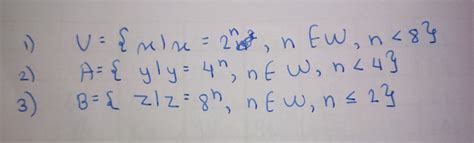 1) U = { x | x = 2ⁿ, n ∈ W, n < 8 }
2) A = { y | y = 4ⁿ, n ∈ W, n < 4 }
3) B = { z | z = 8ⁿ, n ∈ W, n ≤ 2 }